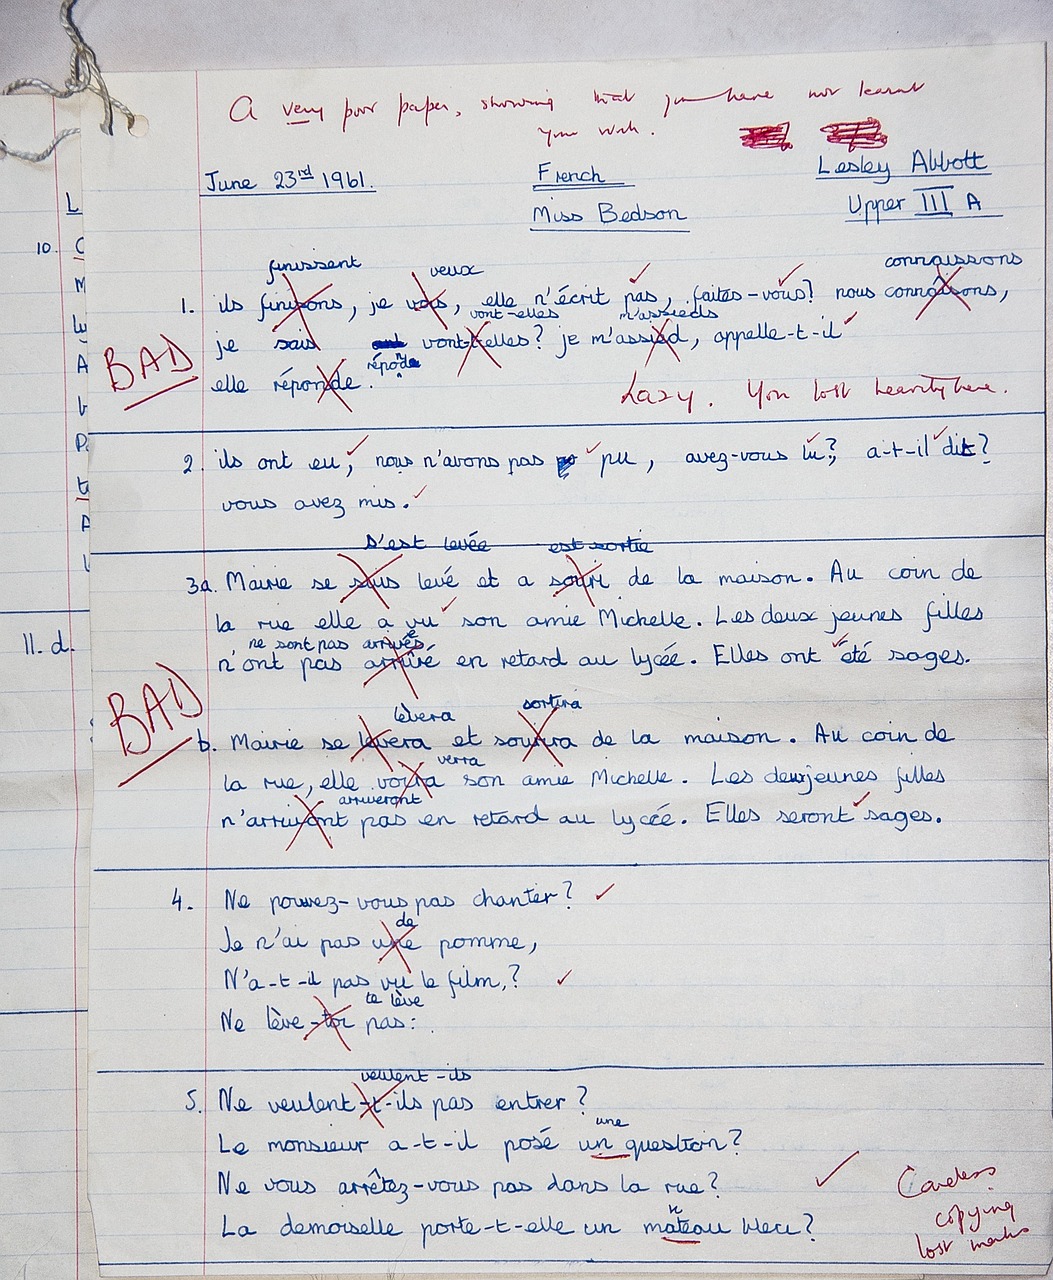 A very poor paper, showing that you have not learnt
your work.
June 23rd 1961.
French
Lesley Abbott
Miss Bedson
Upper III A
finissent veux connaissons
1. ils finisons, je vois, elle n'écrit pas, faites-vous? nous connaisons,
vont-elles m'assieds
BAD
je sais vont-t-elles? je m'assied, appelle-t-il
répond
elle réponde.
Lazy. You lost heavily here.
2. ils ont eu, nous n'avons pas pu, avez-vous lu?, a-t-il dit?
vous avez mis.
s'est levée est sortie
3a. Mairie se suis levé et a souri de la maison. Au coin de
la rue elle a vu son amie Michelle. Les deux jeunes filles
ne sont pas arrivées
n'ont pas arrivé en retard au lycée. Elles ont été sages.
BAD
lèvera sortira
b. Mairie se levera et sourira de la maison. Au coin de
verra
la rue, elle voira son amie Michelle. Les deux jeunes filles
arriveront
n'arrivont pas en retard au lycée. Elles seront sages.
4. Ne pouvez-vous pas chanter?
de
Je n'ai pas une pomme,
N'a-t-il pas vu le film,?
te lève
Ne lève-toi pas:
veulent-ils
5. Ne veulent-t-ils pas entrer?
une
Le monsieur a-t-il posé un question?
Ne vous arrêtez-vous pas dans la rue?
n
La demoiselle porte-t-elle un mateau bleu?
Careless
copying
lost marks
10.
11. d.